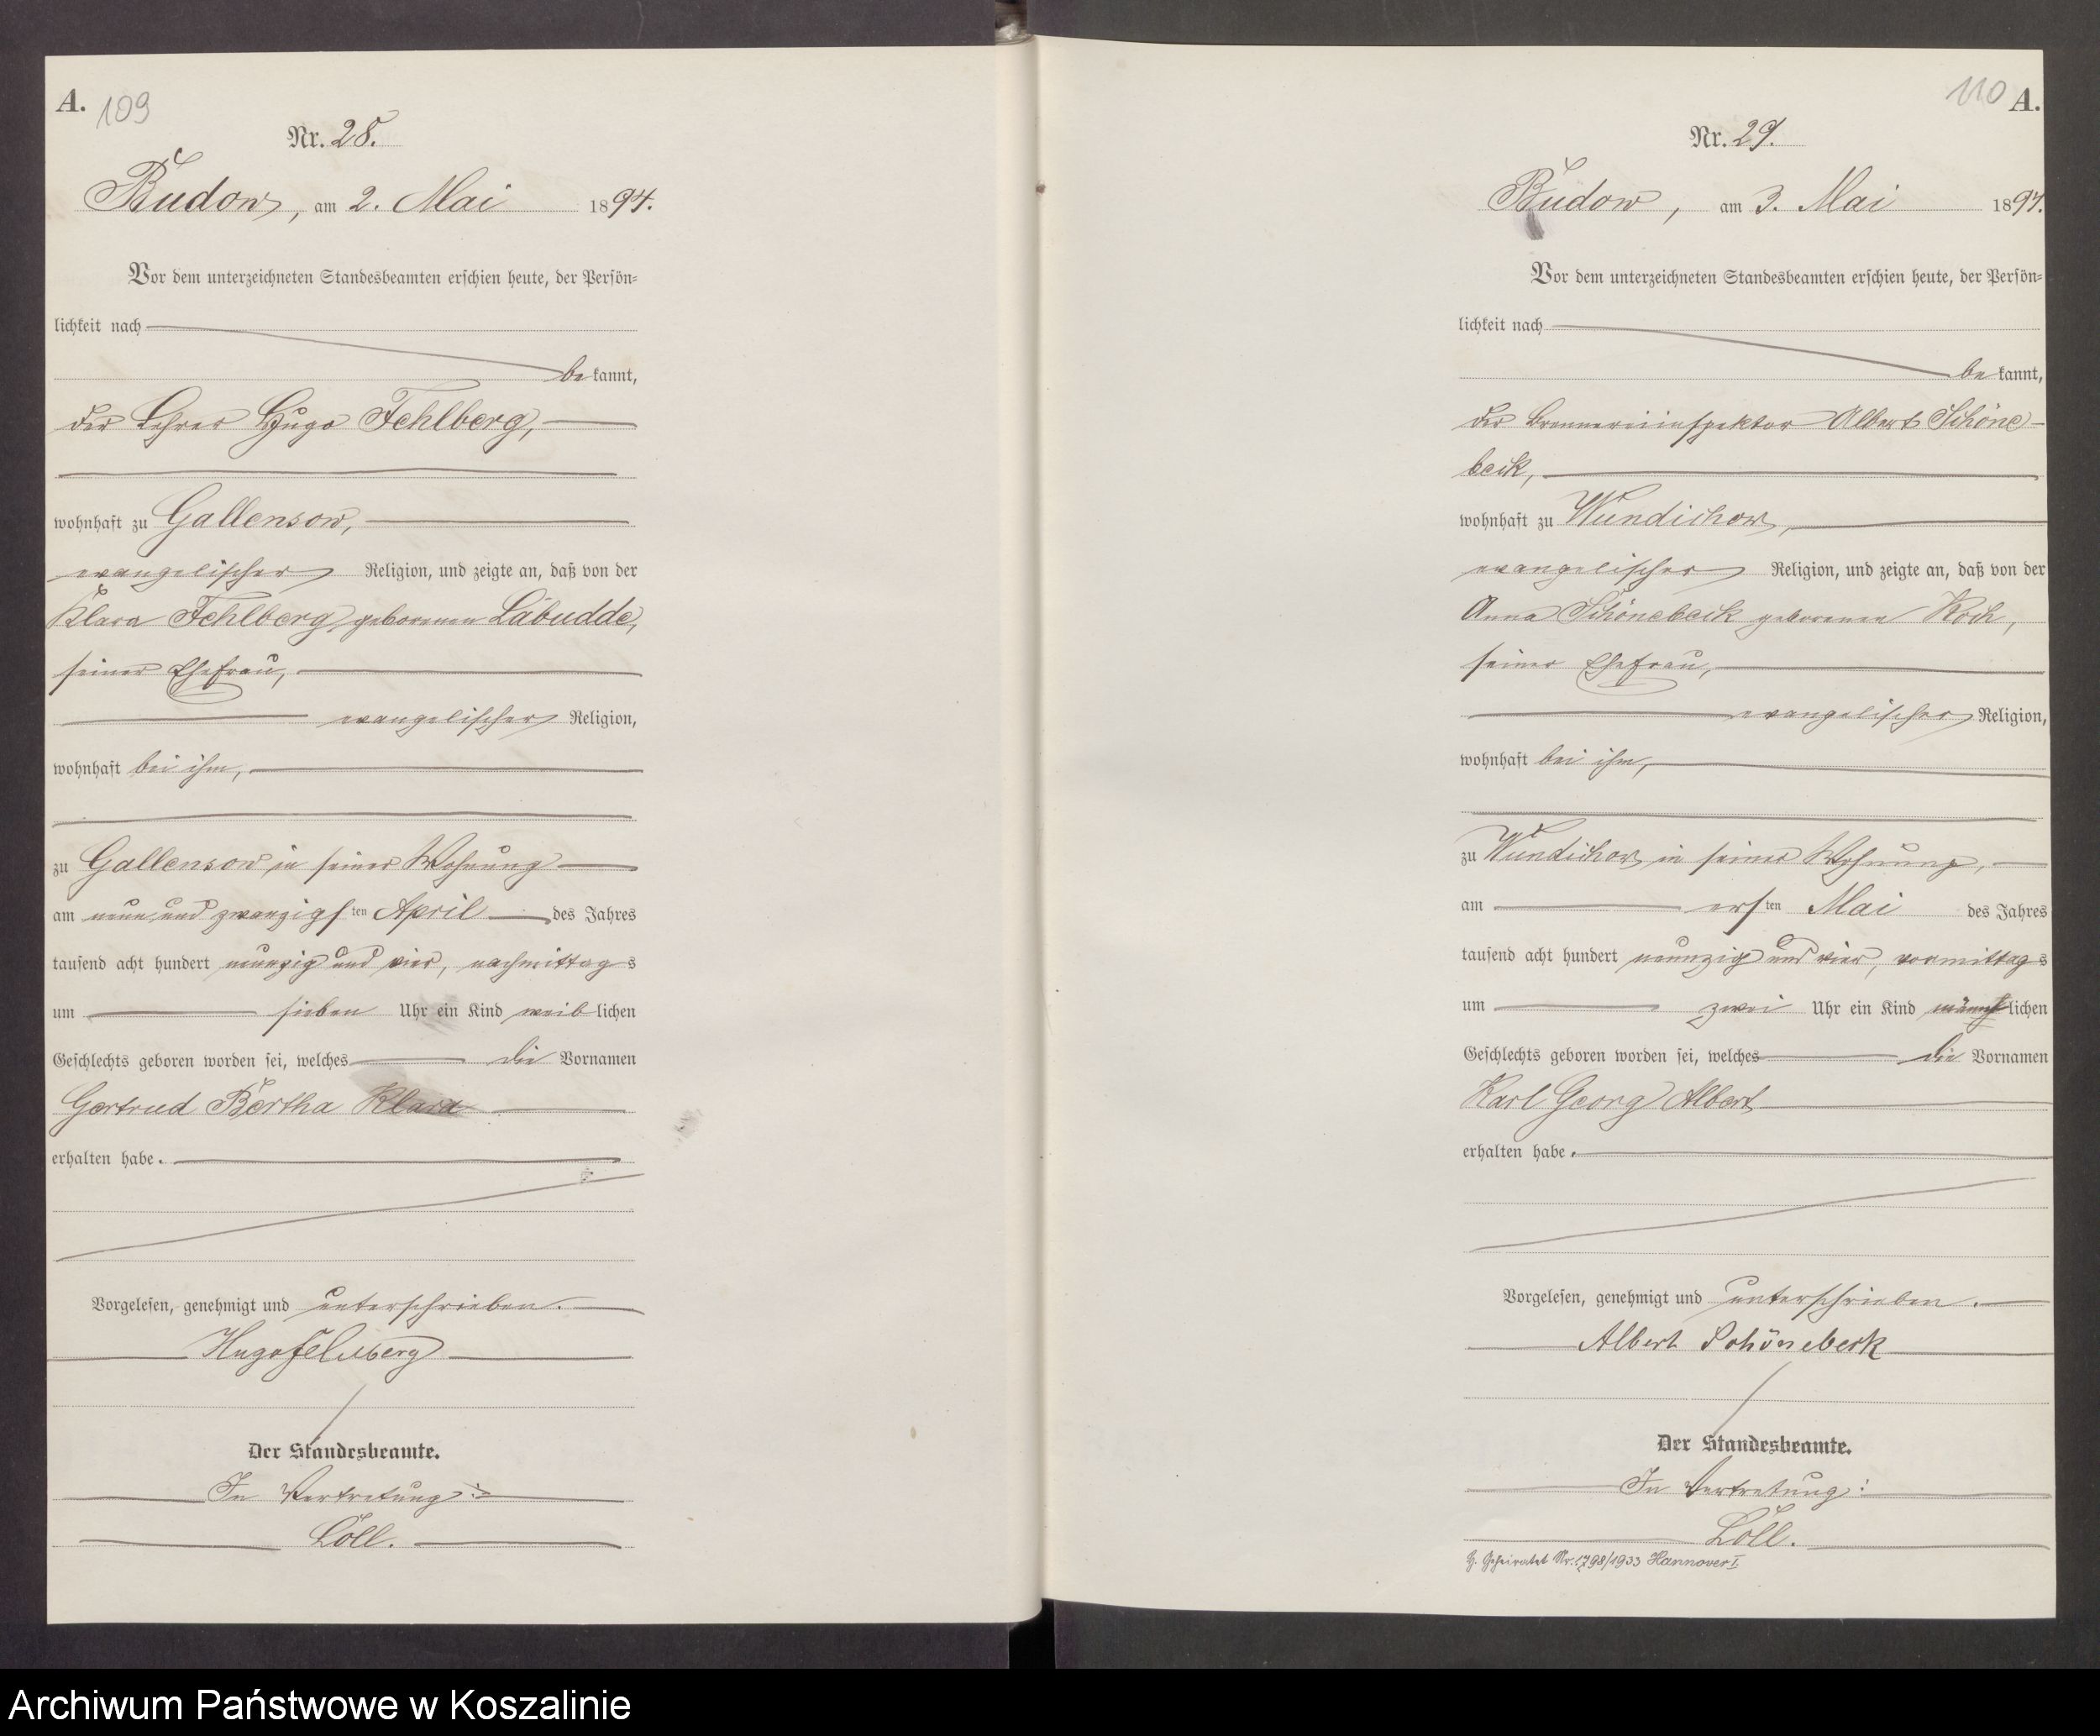 A. 109
Nr. 28.
Budow, am 2. Mai 1894.
Vor dem unterzeichneten Standesbeamten erschien heute, der Persön-
lichkeit nach
be kannt,
der Lehrer Hugo Fehlberg,
wohnhaft zu Gallensow,
evangelischer Religion, und zeigte an, daß von der
Klara Fehlberg geborenen Labudde,
seiner Ehefrau,
evangelischer Religion,
wohnhaft bei ihm,
zu Gallensow in seiner Wohnung
am neun und zwanzigsten April des Jahres
tausend acht hundert neunzig und vier, nachmittags
um sieben Uhr ein Kind weiblichen
Geschlechts geboren worden sei, welches die Vornamen
Gertrud Bertha Klara
erhalten habe.
Vorgelesen, genehmigt und unterschrieben.
Hugo Fehlberg
Der Standesbeamte.
In Vertretung:
Löll.
110 A.
Nr. 29.
Budow, am 3. Mai 1894.
Vor dem unterzeichneten Standesbeamten erschien heute, der Persön-
lichkeit nach
be kannt,
der Brennereiinspektor Albert Schöne-
beck,
wohnhaft zu Wundichow,
evangelischer Religion, und zeigte an, daß von der
Anna Schönebeck geborenen Koch,
seiner Ehefrau,
evangelischer Religion,
wohnhaft bei ihm,
zu Wundichow in seiner Wohnung,
am ersten Mai des Jahres
tausend acht hundert neunzig und vier, vormittags
um zwei Uhr ein Kind männlichen
Geschlechts geboren worden sei, welches die Vornamen
Karl Georg Albert
erhalten habe.
Vorgelesen, genehmigt und unterschrieben.
Albert Schönebeck
Der Standesbeamte.
In Vertretung:
Löll.
G. Geheiratet Nr. 1798/1933 Hannover I.
Archiwum Państwowe w Koszalinie